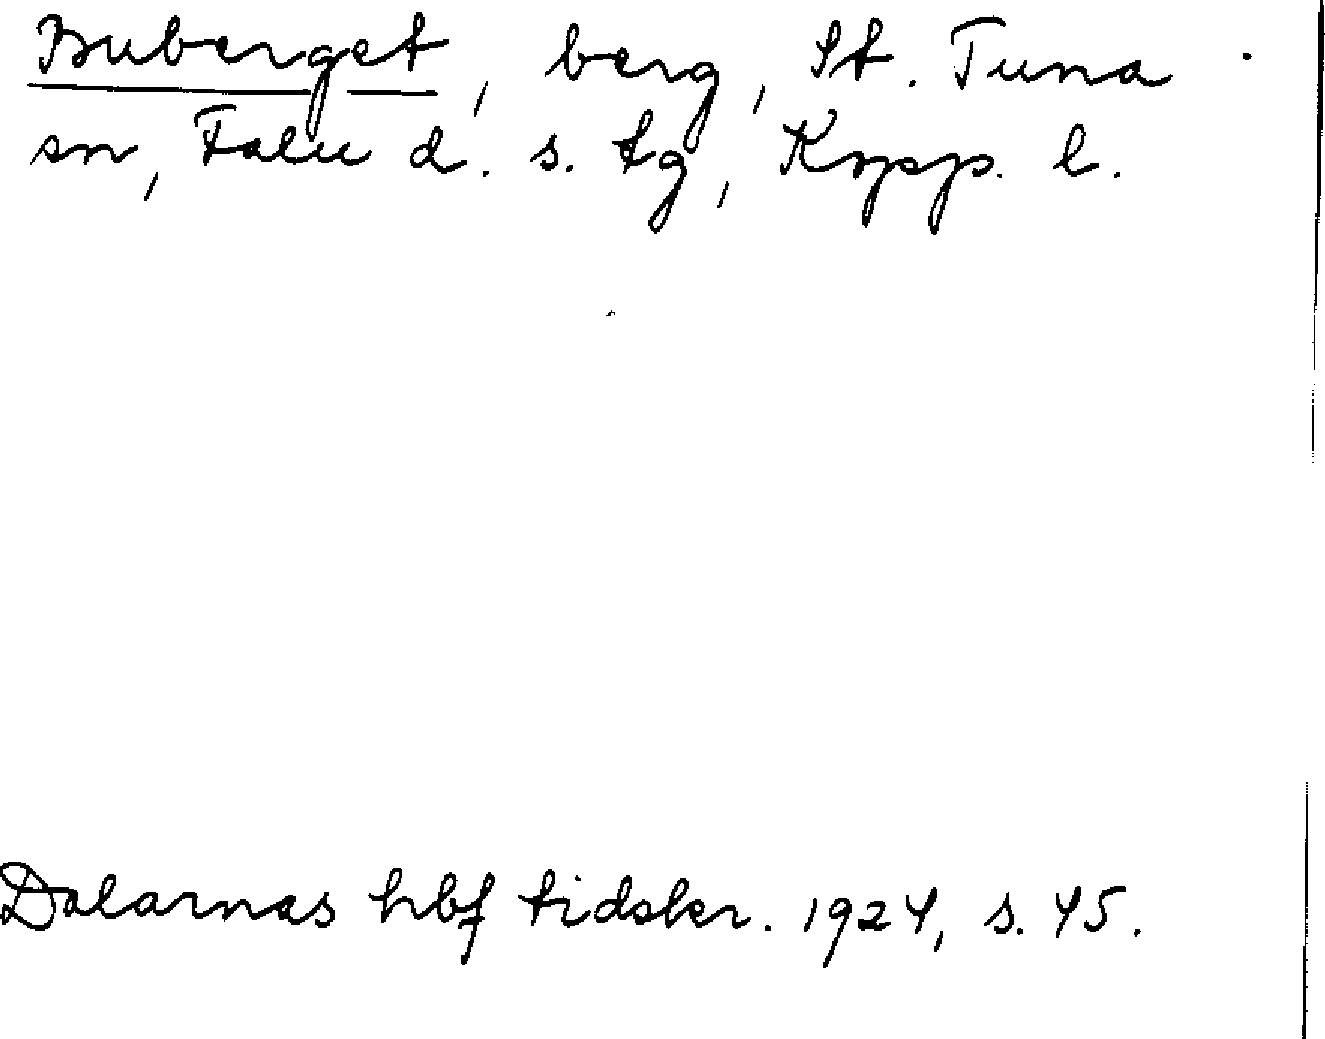 Buberget, berg, St. Tuna
sn, Falu d. s. tg, Kopp. l.
Dalarnas hbf tidskr. 1924, s. 45.